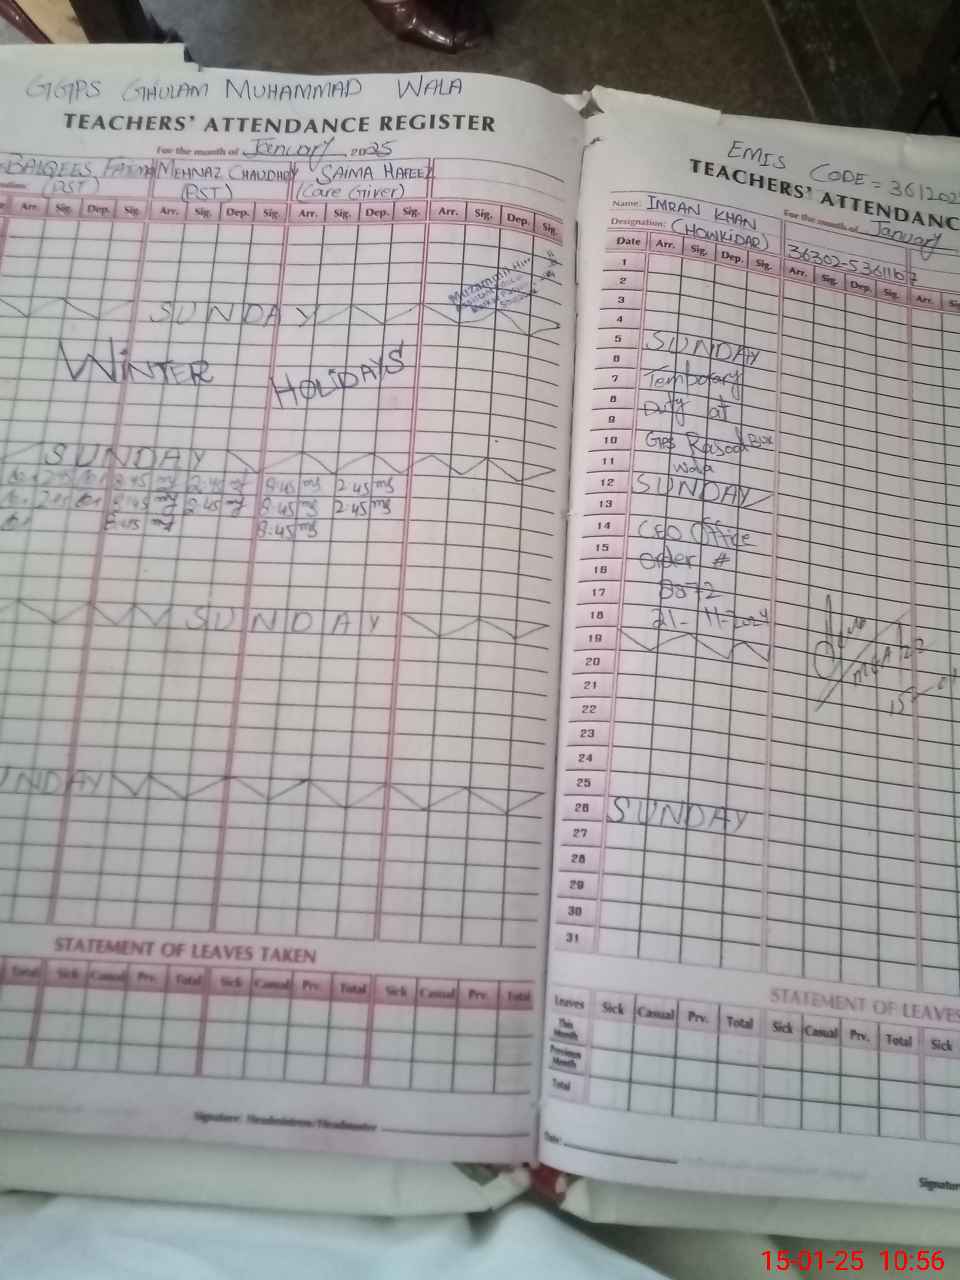 GGPS GHULAM MUHAMMAD WALA
TEACHERS' ATTENDANCE REGISTER
For the month of January 2025
BALQEES FATIMA MEHNAZ CHAUDHRY SAIMA HAFEEZ
(PST) (PST) (Care Giver)
Arr. Sig. Dep. Sig. Arr. Sig. Dep. Sig. Arr. Sig. Dep. Sig. Arr. Sig. Dep. Sig.
SUNDAY
WINTER HOLIDAYS
SUNDAY
8.45 2.45 8.45 2.45
8.45 2.45 8.45 2.45
8.45 8.45
SUNDAY
UNDAY
STATEMENT OF LEAVES TAKEN
Total Sick Casual Prv. Total Sick Casual Prv. Total Sick Casual Prv. Total
Signature: Headmistress/Headmaster
EMIS CODE = 361202
TEACHERS' ATTENDANC
For the month of January
Name: IMRAN KHAN
Designation: (CHOWKIDAR)
36302-5361167
Date Arr. Sig. Dep. Sig. Arr. Sig. Dep. Sig. Arr. Sig
1
2
3
4
5 SUNDAY
6
7 Temporary
8
9 Duty at
10 GPS Rasool Bux
11 Wala
12 SUNDAY
13
14 CEO Office
15 order #
16
17 8072
18 21-11-2024
19
20
21
22
23
24
25
26 SUNDAY
27
28
29
30
31
STATEMENT OF LEAVES
Leaves Sick Casual Prv. Total Sick Casual Prv. Total Sick
This Month
Previous Month
Total
Date:
Signatur
15-01-25 10:56